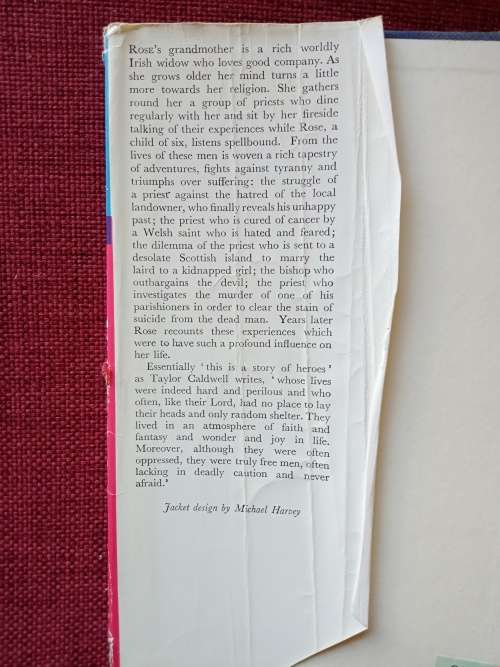 ROSE'S grandmother is a rich worldly
Irish widow who loves good company. As
she grows older her mind turns a little
more towards her religion. She gathers
round her a group of priests who dine
regularly with her and sit by her fireside
talking of their experiences while Rose, a
child of six, listens spellbound. From the
lives of these men is woven a rich tapestry
of adventures, fights against tyranny and
triumphs over suffering: the struggle of
a priest against the hatred of the local
landowner, who finally reveals his unhappy
past; the priest who is cured of cancer by
a Welsh saint who is hated and feared;
the dilemma of the priest who is sent to a
desolate Scottish island to marry the
laird to a kidnapped girl; the bishop who
outbargains the devil; the priest who
investigates the murder of one of his
parishioners in order to clear the stain of
suicide from the dead man. Years later
Rose recounts these experiences which
were to have such a profound influence on
her life.
Essentially 'this is a story of heroes'
as Taylor Caldwell writes, 'whose lives
were indeed hard and perilous and who
often, like their Lord, had no place to lay
their heads and only random shelter. They
lived in an atmosphere of faith and
fantasy and wonder and joy in life.
Moreover, although they were often
oppressed, they were truly free men, often
lacking in deadly caution and never
afraid.'
Jacket design by Michael Harvey